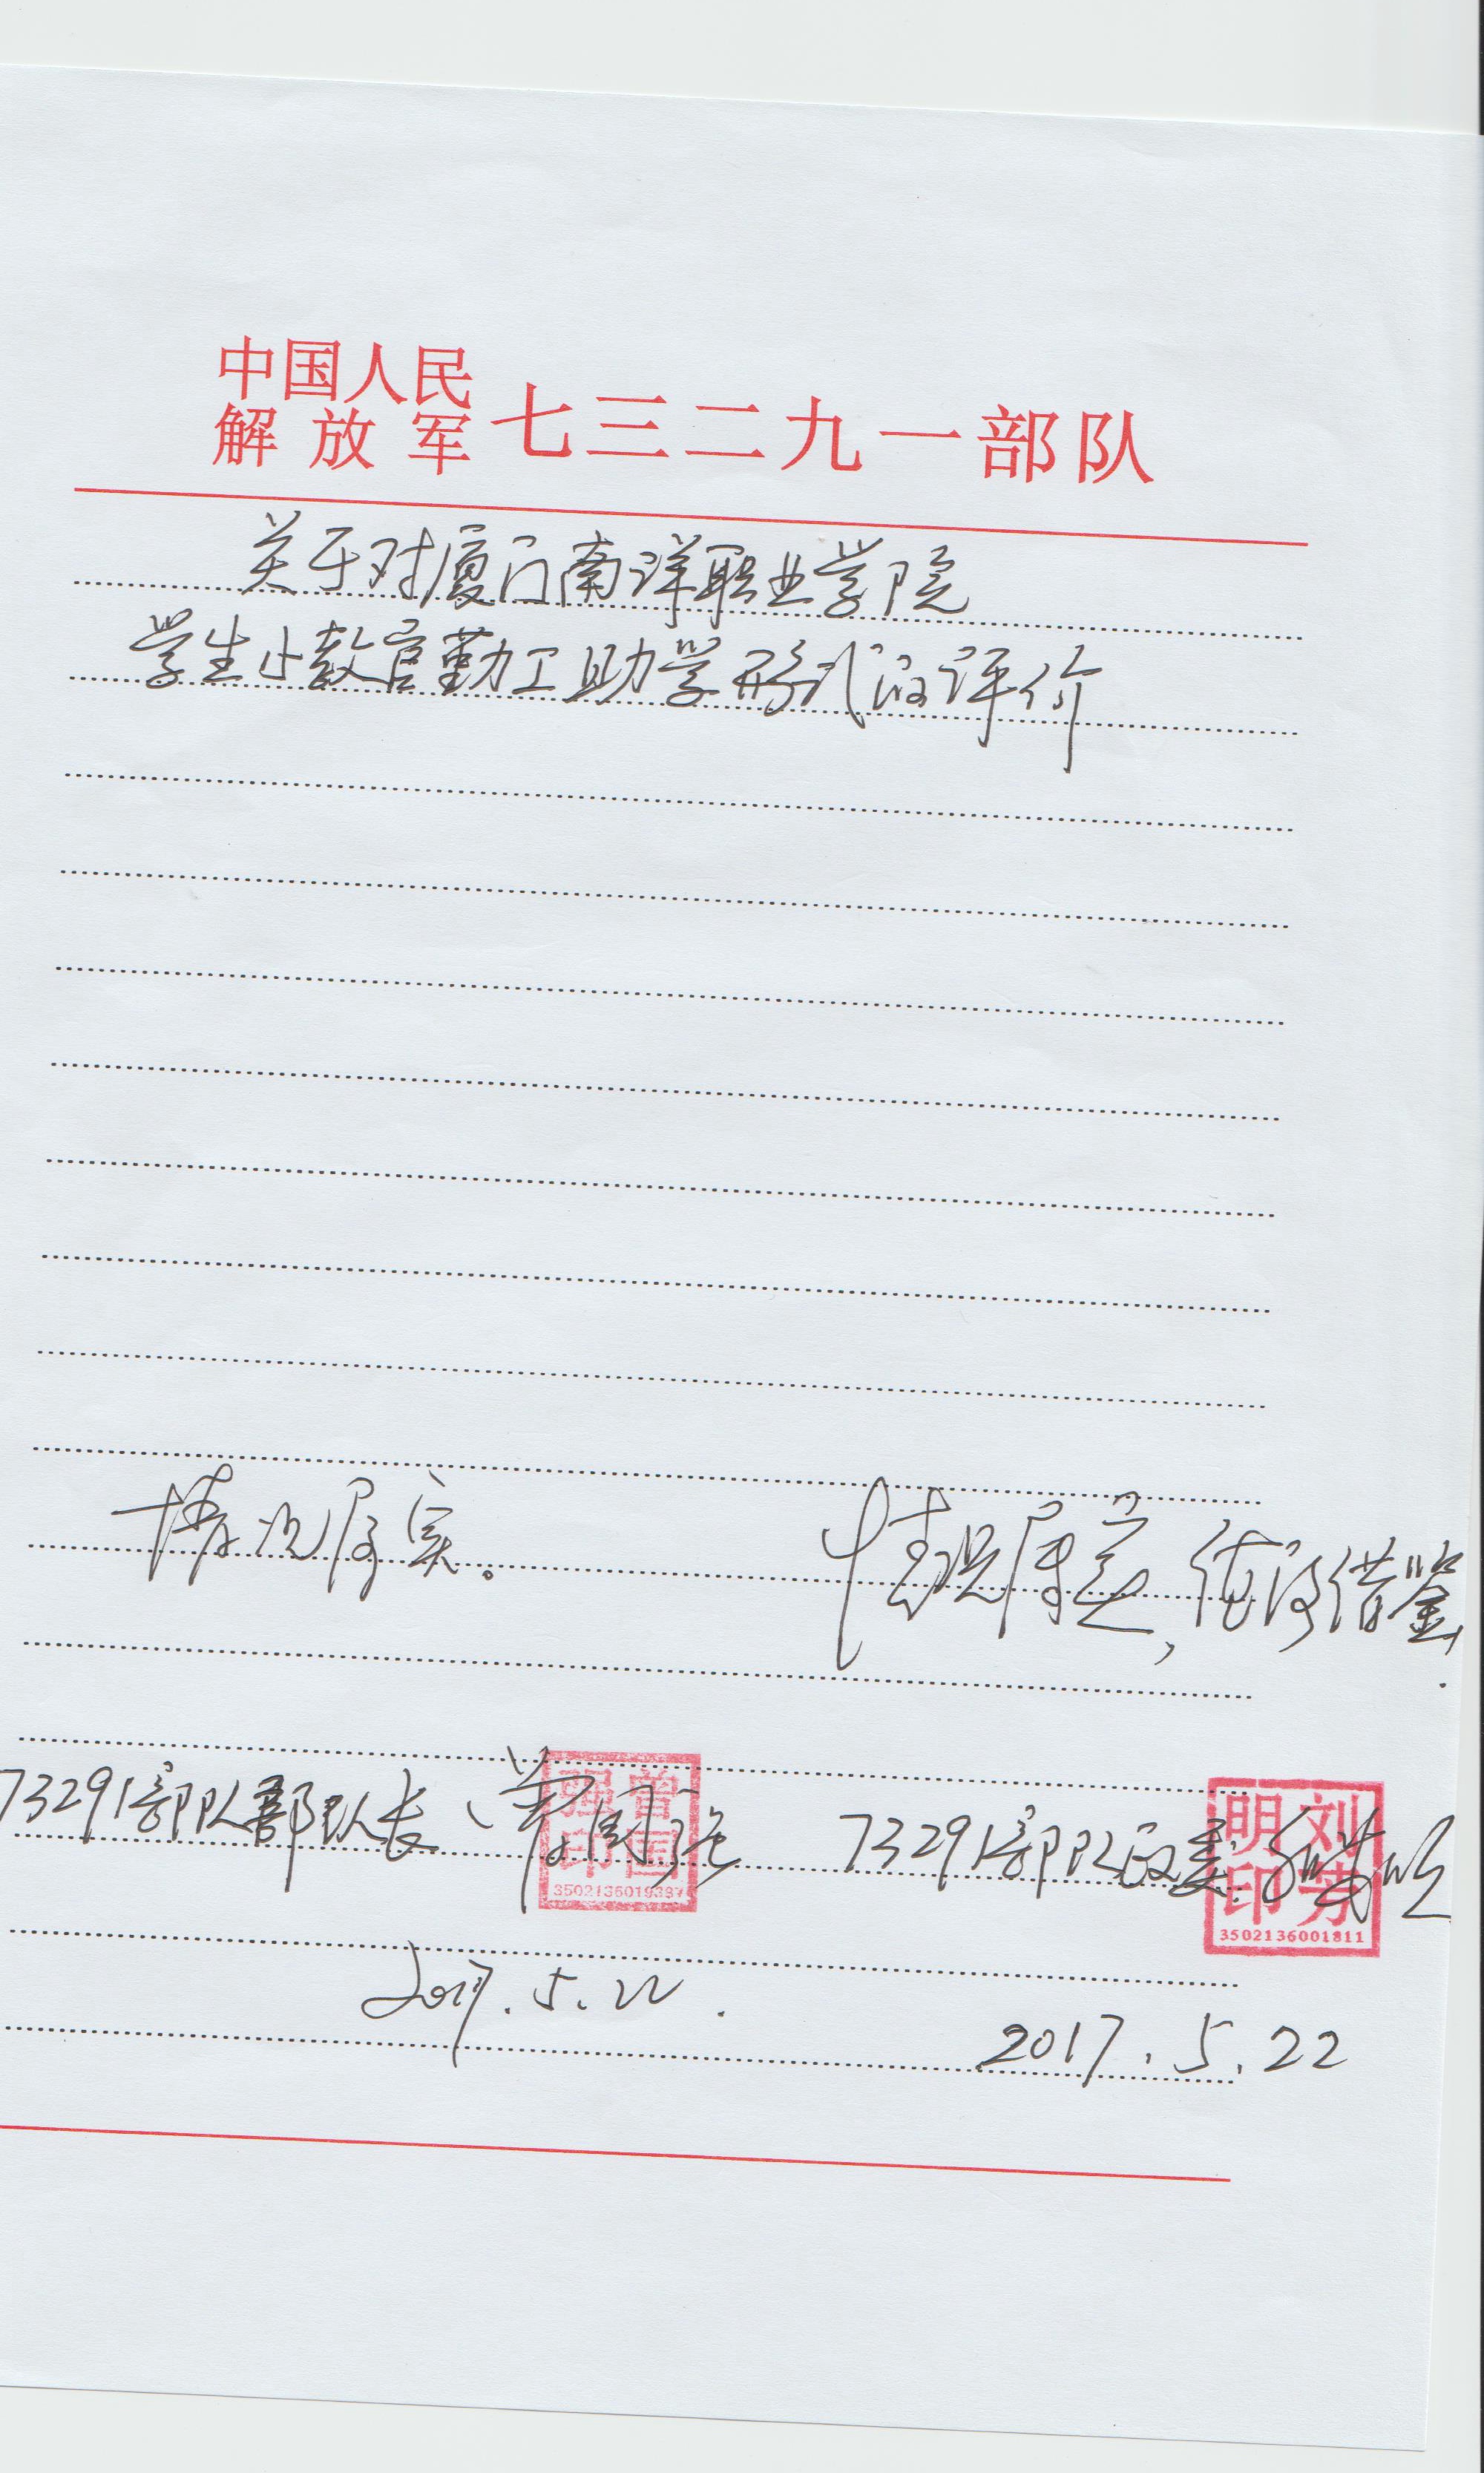 中国人民
解放军七三二九一部队
关于对厦门南洋职业学院
学生小教官勤工助学形式的评价
情况属实。
情况属实，值得借鉴.
73291部队部队长：曾国强
曾国强印
3502136019387
73291部队政委：刘芳明
刘芳明印
3502136001811
2017.5.22.
2017.5.22